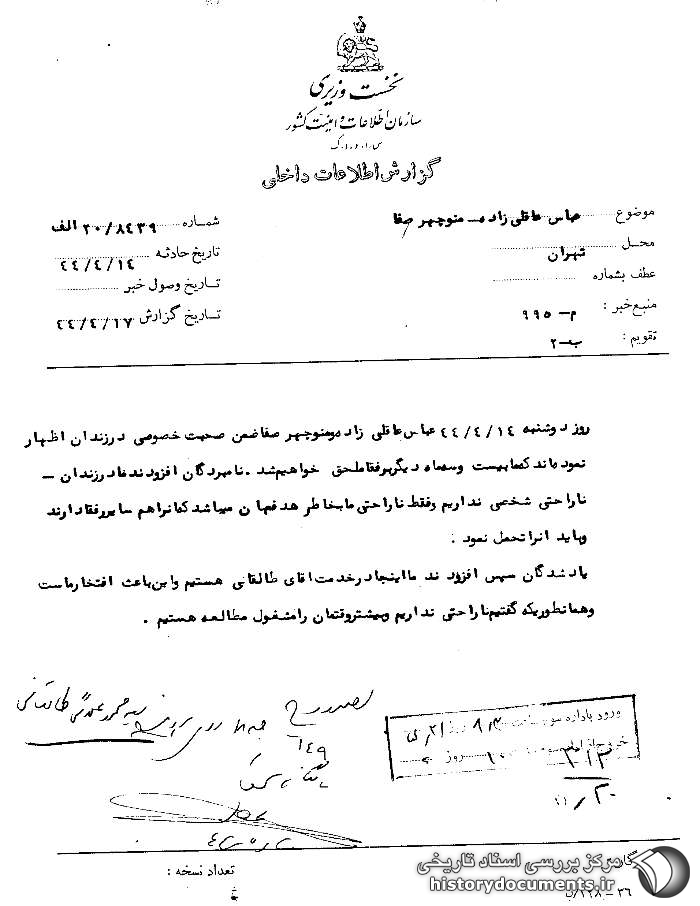 نخست وزیری
سازمان اطلاعات و امنیت کشور
س.ا.و.ا.ک
گزارش اطلاعات داخلی
موضوع عباس عاقلی زاده - منوچهر صفا
محل تهران
عطف بشماره
منبع خبر : م - ۹۹۵
تقویم : ب-۲
شماره ۲۰/۸۴۳۹ الف
تاریخ حادثه ۴۴/۴/۱۴
تاریخ وصول خبر
تاریخ گزارش ۴۴/۴/۱۷
روز دوشنبه ۴۴/۴/۱۴ عباس عاقلی زاده و منوچهر صفا ضمن صحبت خصوصی در زندان اظهار
نموده‌اند که ما بیست و سه ماه دیگر به رفقا ملحق خواهیم شد . نامبردگان افزودند ما در زندان –
ناراحتی شخصی نداریم و فقط ناراحتی ما بخاطر هدفمان میباشد که آنرا هم سایر رفقا دارند
و باید آنرا تحمل نمود .
یاد شدگان سپس افزودند ما اینجا در خدمت آقای طالقانی هستیم و این باعث افتخار ماست
و همانطوریکه گفتیم ناراحتی نداریم و بیشتر وقتمان را مشغول مطالعه هستیم .
سید محمود علائی طالقانی
۱۴۹
ورود باداره
خروج از اداره
روز
۳۱۳
تعداد نسخه :
۳۶ – ۱۲۸/
مرکز بررسی اسناد تاریخی
historydocuments.ir